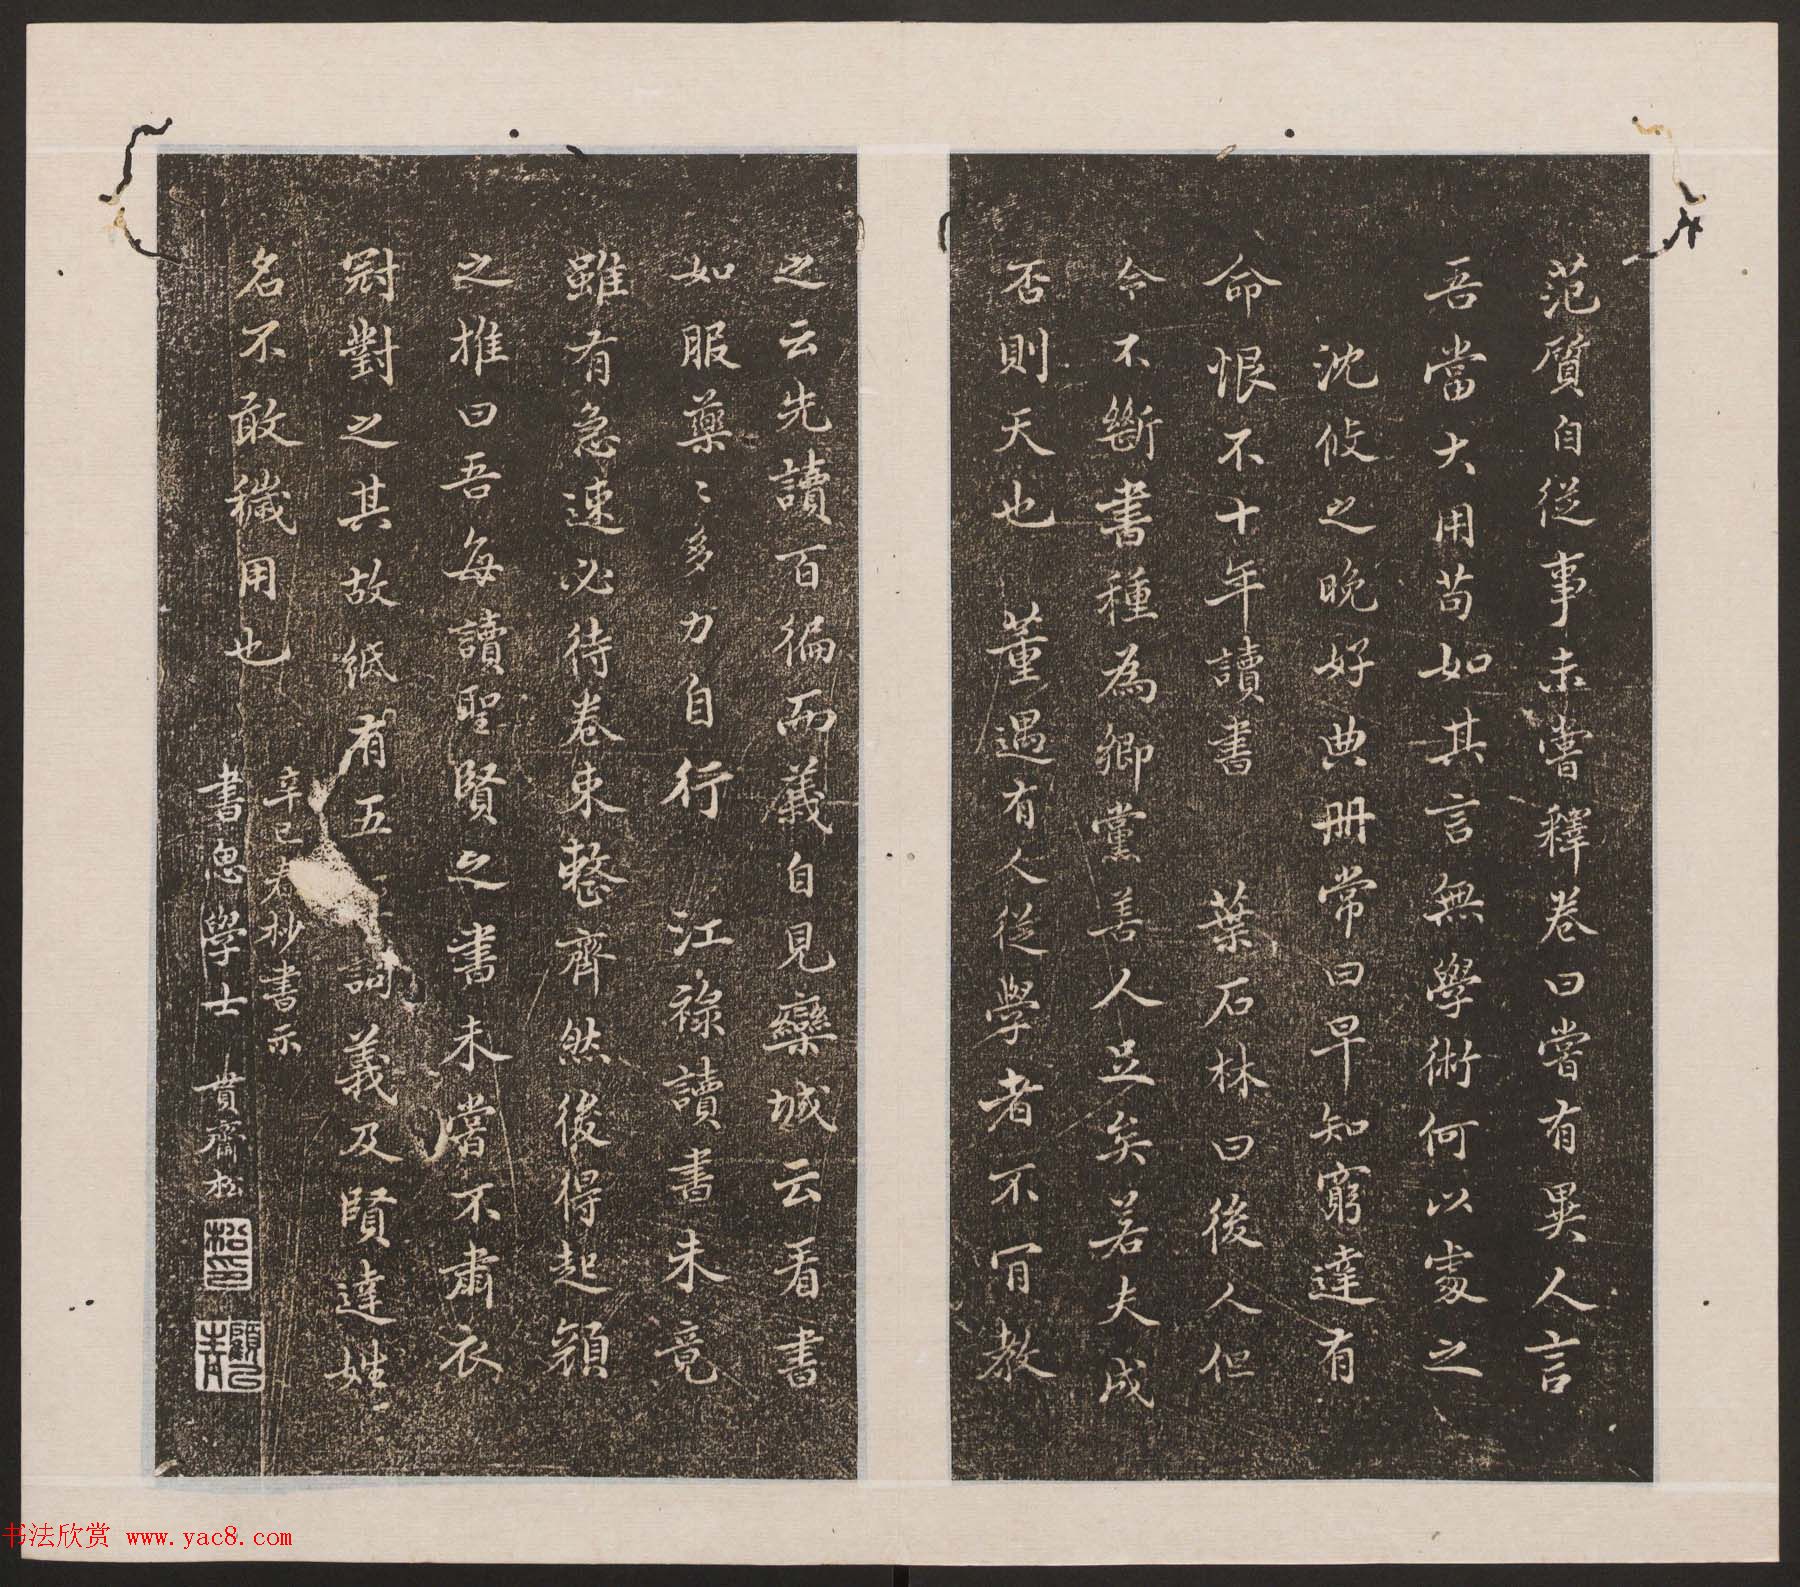 范質自從事未嘗釋卷曰嘗有異人言
吾當大用苟如其言無學術何以處之
沈攸之晚好典册常曰早知窮達有
命恨不十年讀書 葉石林曰後人但
令不斷書種為鄉黨善人足矣若夫成
否則天也 董遇有人從學者不肎教
之云先讀百徧而義自見欒城云看書
如服藥〻多力自行 江祿讀書未竟
雖有急速必待卷束整齊然後得起顏
之推曰吾每讀聖賢之書未嘗不肅衣
冠對之其故紙有五 詞義及賢達姓
名不敢穢用也
辛巳 杪書示
書思學士 貫齋松
松印
顧己
书法欣赏 www.yac8.com